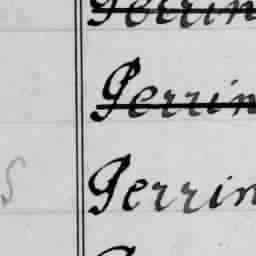 Perrin
Perrin
S Perrin